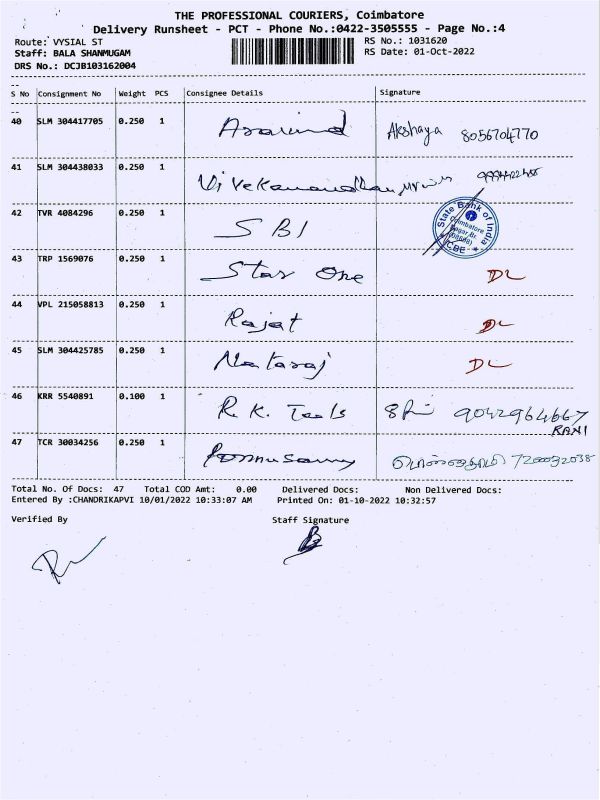 THE PROFESSIONAL COURIERS, Coimbatore
Delivery Runsheet - PCT - Phone No.:0422-3505555 - Page No.:4
Route: VYSIAL ST RS No.: 1031620
Staff: BALA SHANMUGAM RS Date: 01-Oct-2022
DRS No.: DCJB103162004
S No Consignment No Weight PCS Consignee Details Signature
40 SLM 304417705 0.250 1 Aravind Akshaya 8056704770
41 SLM 304438033 0.250 1 Vivekanandhan
42 TVR 4084296 0.250 1 SBI State Bank of India Coimbatore
43 TRP 1569076 0.250 1 Star One DL
44 VPL 215058813 0.250 1 Rajat DL
45 SLM 304425785 0.250 1 Nataraj DL
46 KRR 5540891 0.100 1 R.K. Tools 9042964667
RANI
47 TCR 30034256 0.250 1 Ponnusamy பொன்னுசாமி
Total No. Of Docs: 47 Total COD Amt: 0.00 Delivered Docs: Non Delivered Docs:
Entered By :CHANDRIKAPVI 10/01/2022 10:33:07 AM Printed On: 01-10-2022 10:32:57
Verified By Staff Signature